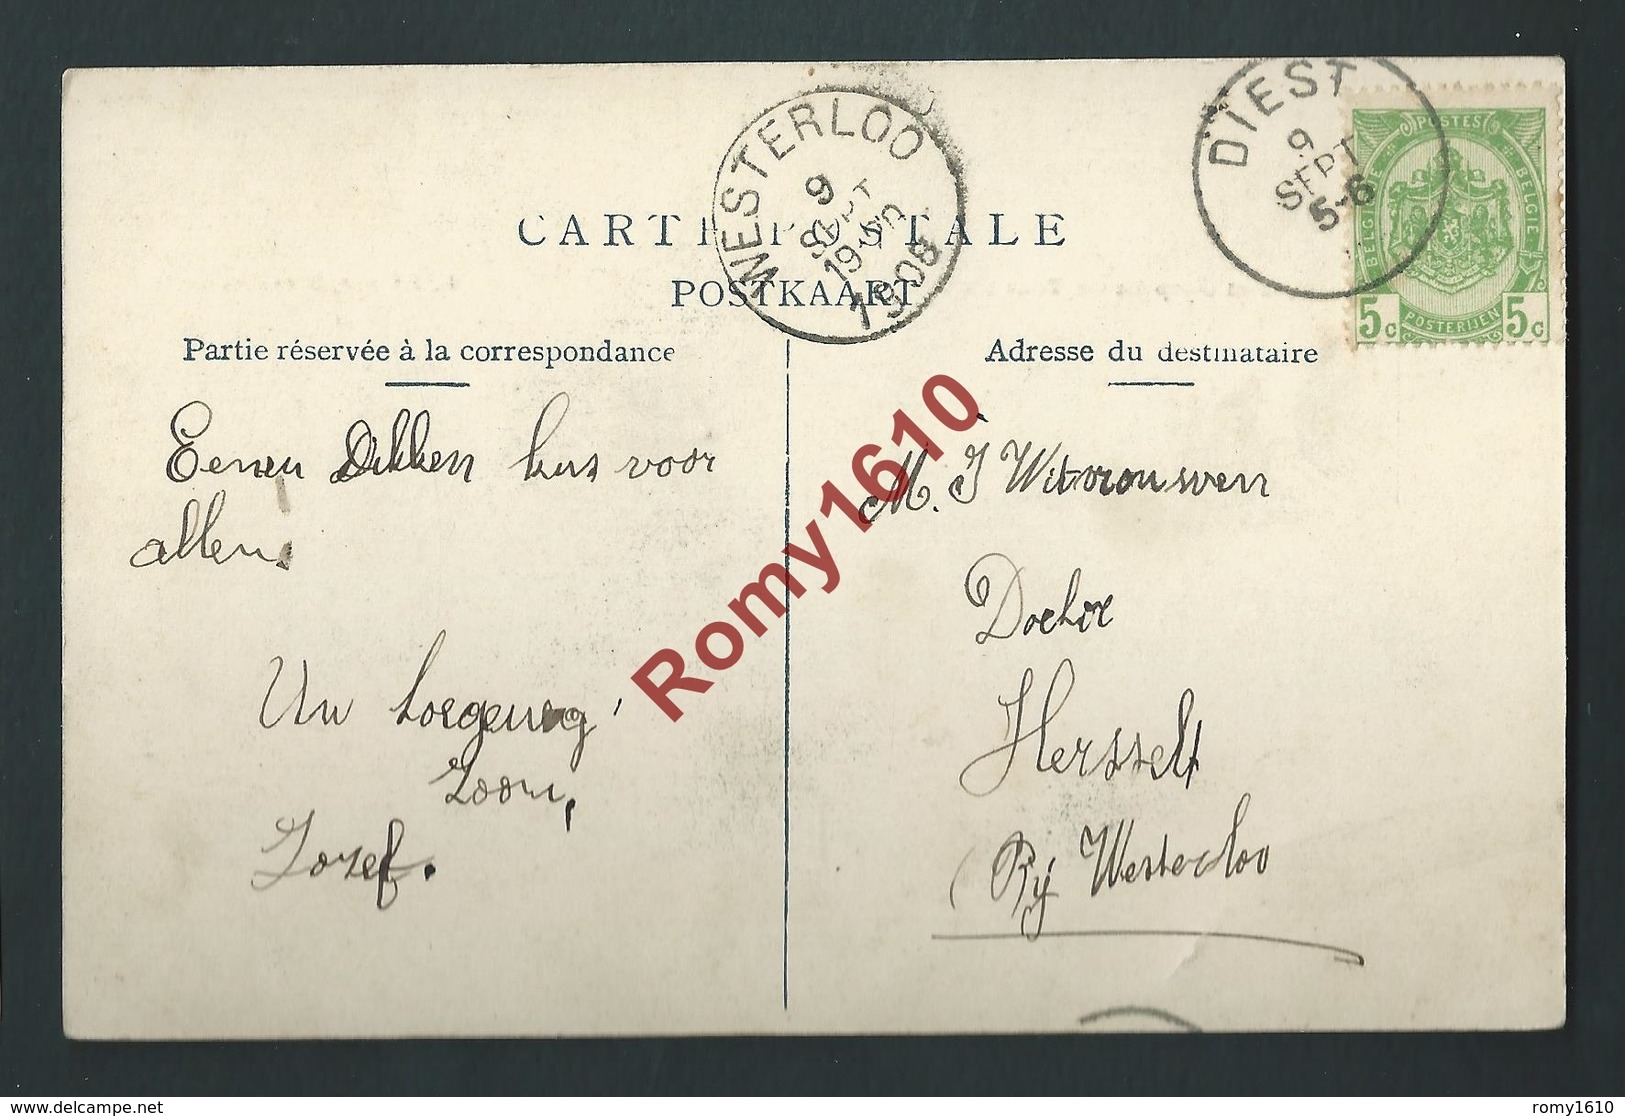 CARTE POSTALE
POSTKAART
WESTERLOO
9
SEPT
19-20
1908
DIEST
9
SEPT
5-6
POSTES
BELGIQUE
BELGIE
POSTERIJEN
5c
5c
Partie réservée à la correspondance
Adresse du destinataire
Eenen Dikken kus voor
allen.
Uw
Zoon,
Jozef.
M. J Witvrouwen
Hersselt
(Bij Westerloo
Romy1610
delcampe.net
romy1610